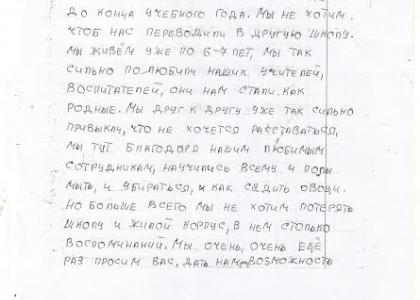 ДО КОНЦА УЧЕБНОГО ГОДА. МЫ НЕ ХОТИМ,
ЧТОБ НАС ПЕРЕВОДИЛИ В ДРУГУЮ ШКОЛУ.
МЫ ЖИВЁМ УЖЕ ПО 6-7 ЛЕТ, МЫ ТАК
СИЛЬНО ПОЛЮБИЛИ НАШИХ УЧИТЕЛЕЙ,
ВОСПИТАТЕЛЕЙ, ОНИ НАМ СТАЛИ КАК
РОДНЫЕ. МЫ ДРУГ К ДРУГУ УЖЕ ТАК СИЛЬНО
ПРИВЫКЛИ, ЧТО НЕ ХОЧЕТСЯ РАССТАВАТЬСЯ,
МЫ ТУТ БЛАГОДОРЯ НАШИМ ЛЮБИМЫМ
СОТРУДНИКАМ, НАУЧИЛИСЬ ВСЕМУ И ПОЛЫ
МЫТЬ, И УБИРАТЬСЯ, И КАК САДИТЬ ОВОЩИ.
НО БОЛЬШЕ ВСЕГО МЫ НЕ ХОТИМ ПОТЕРЯТЬ
ШКОЛУ И ЖИЛОЙ КОРПУС, В НЕМ СТОЛЬКО
ВОСПОМИНАНИЙ. МЫ ОЧЕНЬ, ОЧЕНЬ ЕЩЁ
РАЗ ПРОСИМ ВАС, ДАТЬ НАМ ВОЗМОЖНОСТЬ